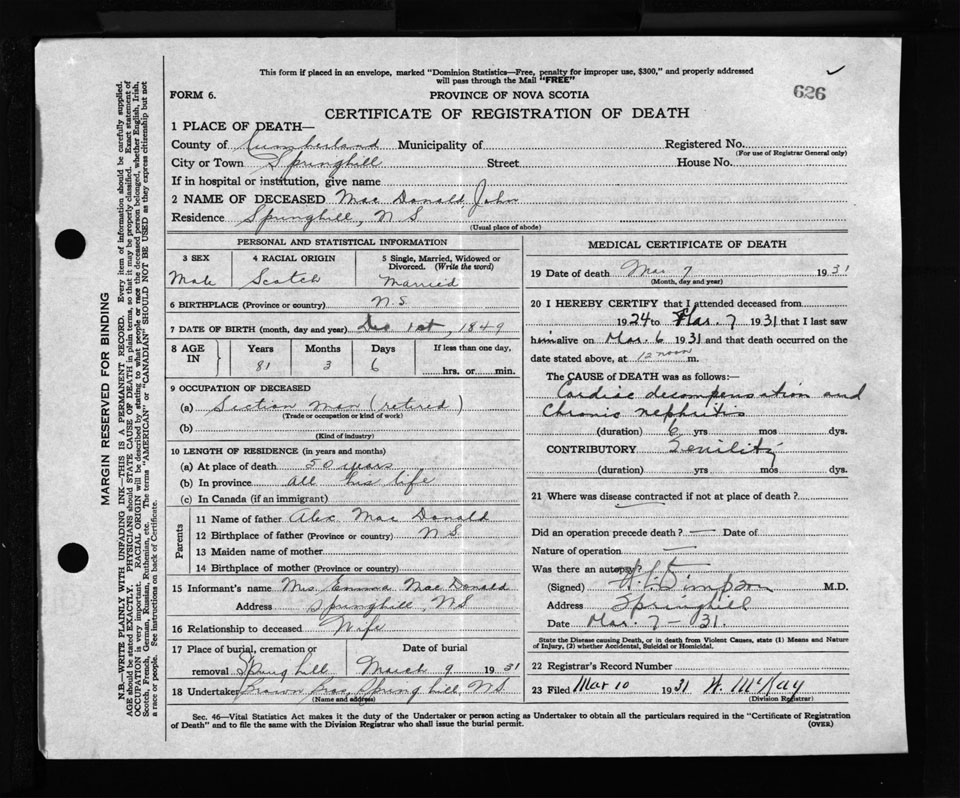 This form if placed in an envelope, marked "Dominion Statistics—Free, penalty for improper use, $300," and properly addressed
will pass through the Mail "FREE"
626
FORM 6.
PROVINCE OF NOVA SCOTIA
CERTIFICATE OF REGISTRATION OF DEATH
1 PLACE OF DEATH—
County of Cumberland Municipality of Registered No.
(For use of Registrar General only)
City or Town Springhill Street House No.
If in hospital or institution, give name
2 NAME OF DECEASED Mac Donald, John
Residence Springhill, N S
(Usual place of abode)
PERSONAL AND STATISTICAL INFORMATION
3 SEX 4 RACIAL ORIGIN 5 Single, Married, Widowed or
Divorced. (Write the word)
Male Scotch Married
6 BIRTHPLACE (Province or country) N.S
7 DATE OF BIRTH (month, day and year) Dec 1st, 1849
8 AGE IN Years Months Days If less than one day,
81 3 6 hrs. or min.
9 OCCUPATION OF DECEASED
(a) Section Man (retired)
(Trade or occupation or kind of work)
(b)
(Kind of industry)
10 LENGTH OF RESIDENCE (in years and months)
(a) At place of death 50 years
(b) In province all his life
(c) In Canada (if an immigrant)
Parents
11 Name of father Alex Mac Donald
12 Birthplace of father (Province or country) N S
13 Maiden name of mother
14 Birthplace of mother (Province or country)
15 Informant's name Mrs Emma MacDonald
Address Springhill, NS
16 Relationship to deceased Wife
17 Place of burial, cremation or Date of burial
removal Springhill March 9 1931
18 Undertaker Brown Bros, Springhill, NS
(Name and address)
MEDICAL CERTIFICATE OF DEATH
19 Date of death Mar 7 1931
(Month, day and year)
20 I HEREBY CERTIFY that I attended deceased from
1924 to Mar. 7 1931 that I last saw
him alive on Mar. 6 1931 and that death occurred on the
date stated above, at 12 noon m.
The CAUSE OF DEATH was as follows:—
Cardiac decompensation and
Chronic nephritis
(duration) 6 yrs mos dys.
CONTRIBUTORY Senility
(duration) yrs mos dys.
21 Where was disease contracted if not at place of death?
Did an operation precede death? — Date of
Nature of operation —
Was there an autopsy?
(Signed) Simpson M.D.
Address Springhill
Date Mar. 7 - 31.
State the Disease causing Death, or in death from Violent Causes, state (1) Means and Nature
of Injury, (2) whether Accidental, Suicidal or Homicidal.
22 Registrar's Record Number
23 Filed Mar 10 1931 W. McKay
(Division Registrar)
Sec. 46—Vital Statistics Act makes it the duty of the Undertaker or person acting as Undertaker to obtain all the particulars required in the "Certificate of Registration
of Death" and to file the same with the Division Registrar who shall issue the burial permit.
(OVER)
MARGIN RESERVED FOR BINDING
N.B.—WRITE PLAINLY WITH UNFADING INK—THIS IS A PERMANENT RECORD. Every item of information should be carefully supplied.
AGE should be stated EXACTLY. PHYSICIANS should STATE CAUSE OF DEATH in plain terms, so that it may be properly classified. Exact statement of
OCCUPATION is very important. RACIAL ORIGIN will be described by stating to what people or race the deceased person belonged, whether English, Irish,
Scotch, French, German, Russian, Ruthenian, etc. The terms "AMERICAN" or "CANADIAN" SHOULD NOT BE USED as they express citizenship but not
a race or people. See instructions on back of Certificate.